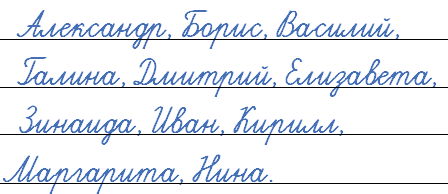 Александр, Борис, Василий,
Галина, Дмитрий, Елизавета,
Зинаида, Иван, Кирилл,
Маргарита, Нина.